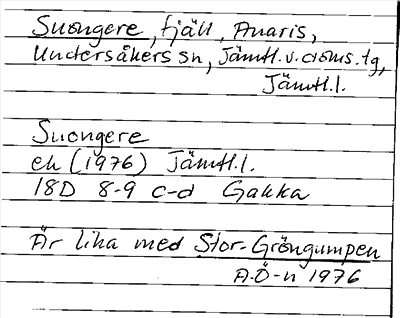 Suongere, fjäll, Anaris,
Undersåkers sn, Jämtl.v.doms.tg,
Jämtl.l.
Suongere
ek (1976) Jämtl.l.
18D 8-9 c-d Gakka
Är lika med Stor-Gröngumpen
A.Ö-n 1976